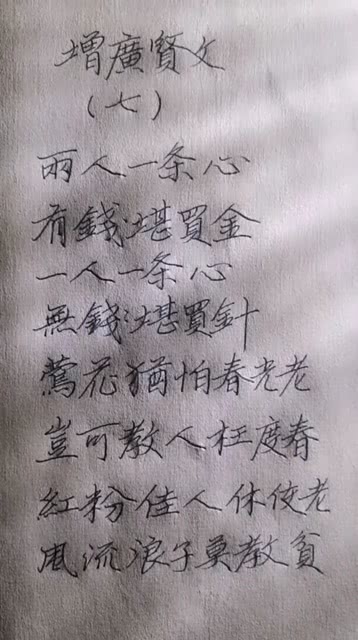 增廣賢文
（七）
兩人一条心
有錢堪買金
一人一条心
無錢堪買針
鶯花猶怕春光老
豈可教人枉度春
紅粉佳人休佼老
風流浪子莫教貧